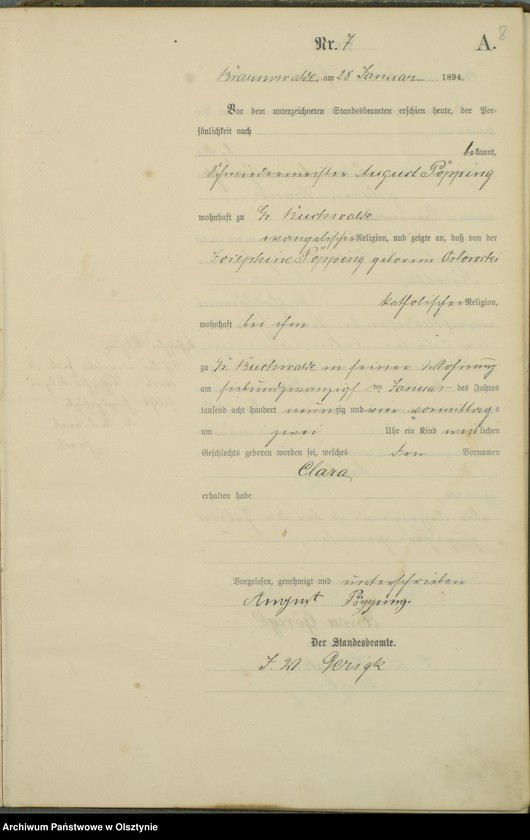 8
Nr. 7 A.
Braunswalde, am 28 Januar 1894.
Vor dem unterzeichneten Standesbeamten erschien heute, der Per-
sönlichkeit nach
bekannt,
Schmiedemeister August Pöpping
wohnhaft zu Gr. Buchwalde
evangelischer Religion, und zeigte an, daß von der
Josephine Pöpping geborene Orlowski
katholischer Religion,
wohnhaft bei ihm
zu Gr. Buchwalde in seiner Wohnung
am siebundzwanzigsten Januar des Jahres
tausend acht hundert neunzig und vier vormittags
um zwei Uhr ein Kind weiblichen
Geschlechts geboren worden sei, welches den Vornamen
Clara
erhalten habe
Vorgelesen, genehmigt und unterschrieben
August Pöpping.
Der Standesbeamte.
J. V. Gerigk
Archiwum Państwowe w Olsztynie